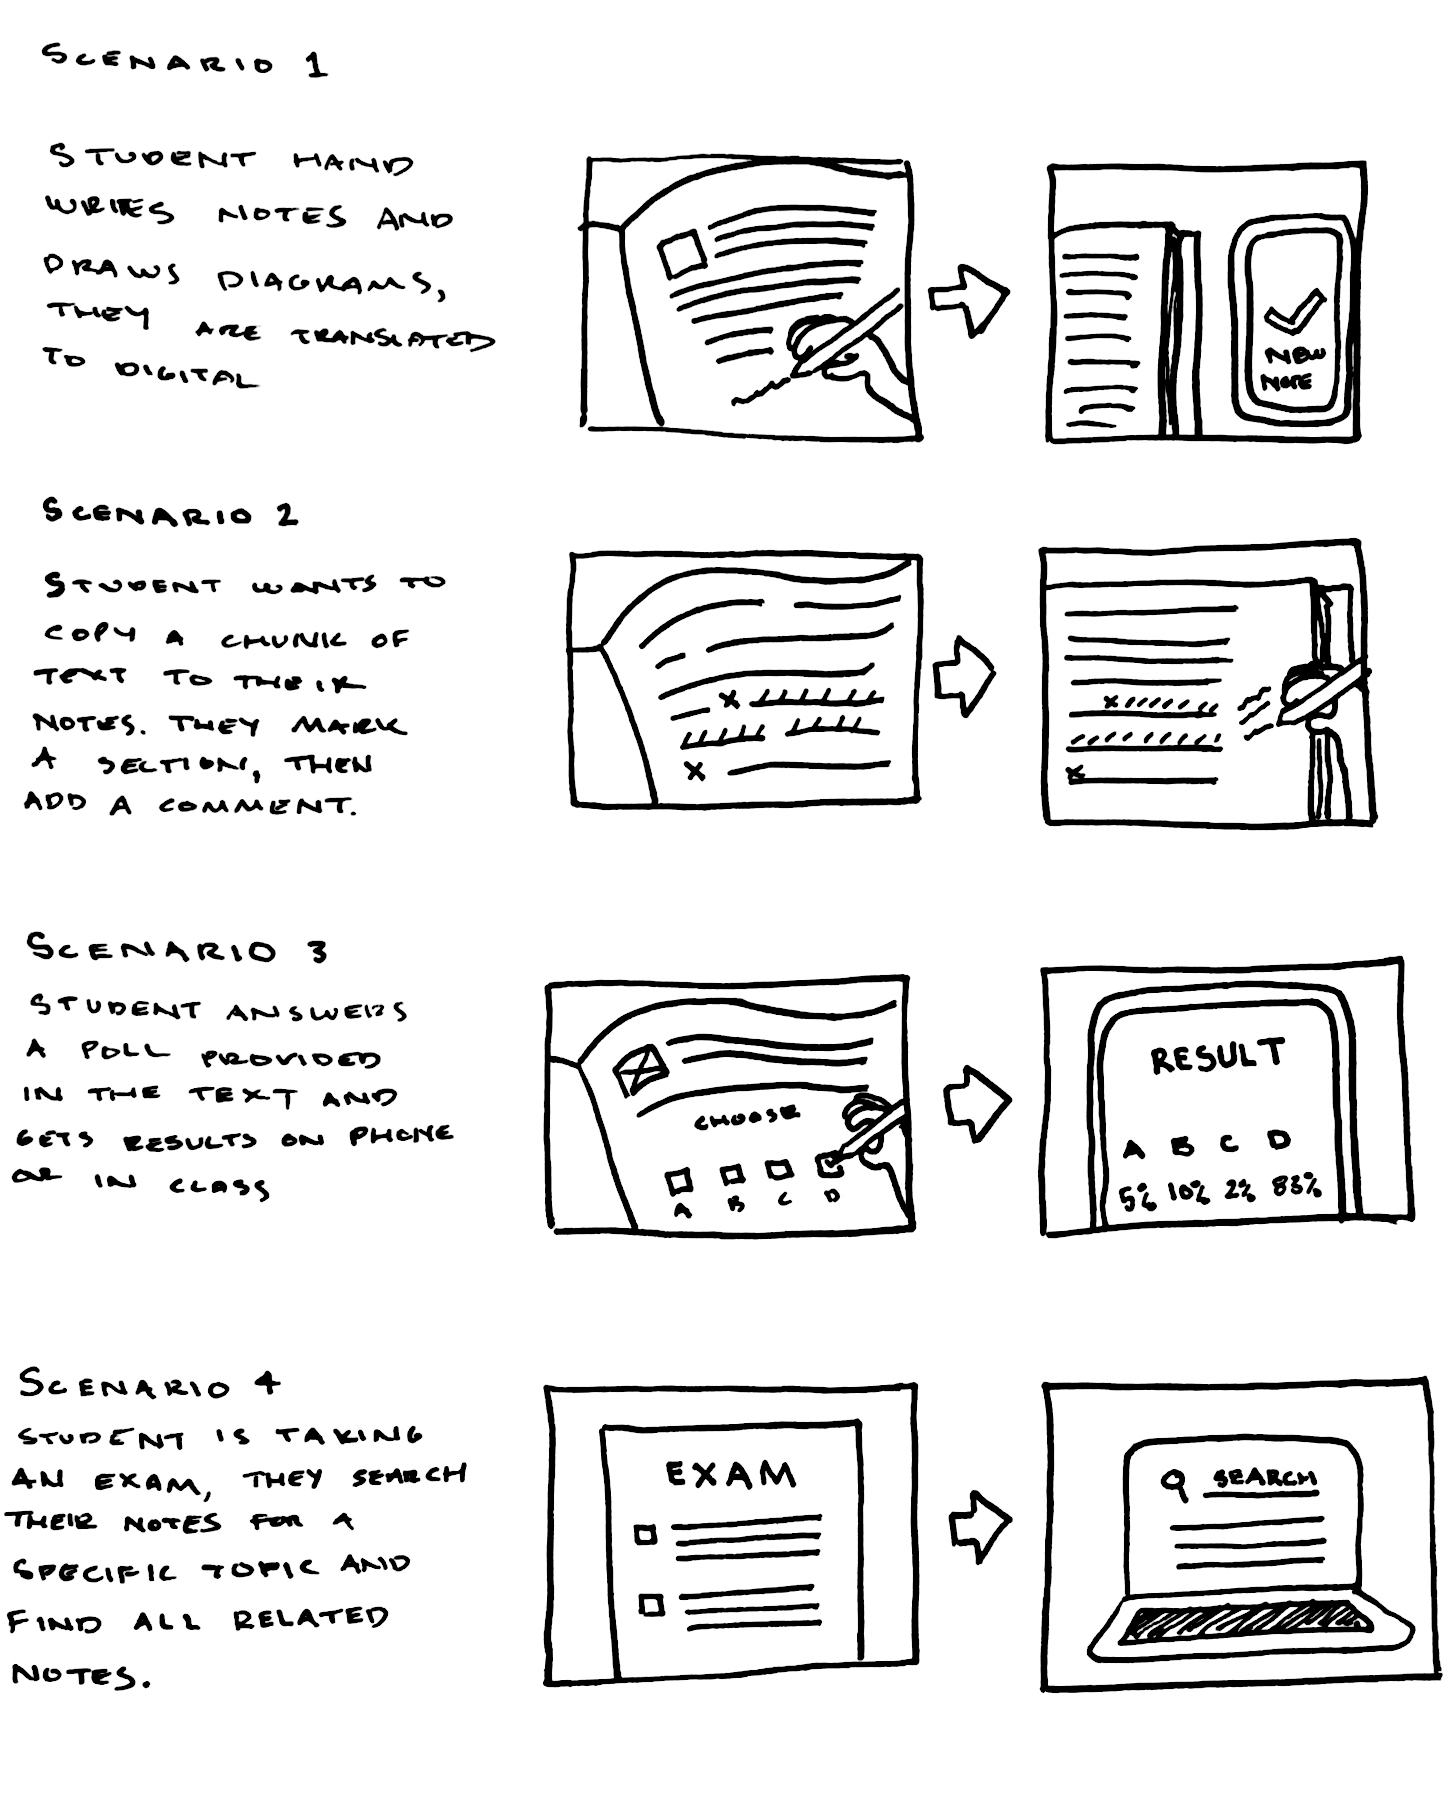 SCENARIO 1
STUDENT HAND
WRITES NOTES AND
DRAWS DIAGRAMS,
THEY ARE TRANSLATED
TO DIGITAL
NEW
NOTE
SCENARIO 2
STUDENT WANTS TO
COPY A CHUNK OF
TEXT TO THEIR
NOTES. THEY MARK
A SECTION, THEN
ADD A COMMENT.
X
X
X
X
SCENARIO 3
STUDENT ANSWERS
A POLL PROVIDED
IN THE TEXT AND
GETS RESULTS ON PHONE
OR IN CLASS
CHOOSE
A B C D
RESULT
A B C D
5% 10% 2% 83%
SCENARIO 4
STUDENT IS TAKING
AN EXAM, THEY SEARCH
THEIR NOTES FOR A
SPECIFIC TOPIC AND
FIND ALL RELATED
NOTES.
EXAM
SEARCH